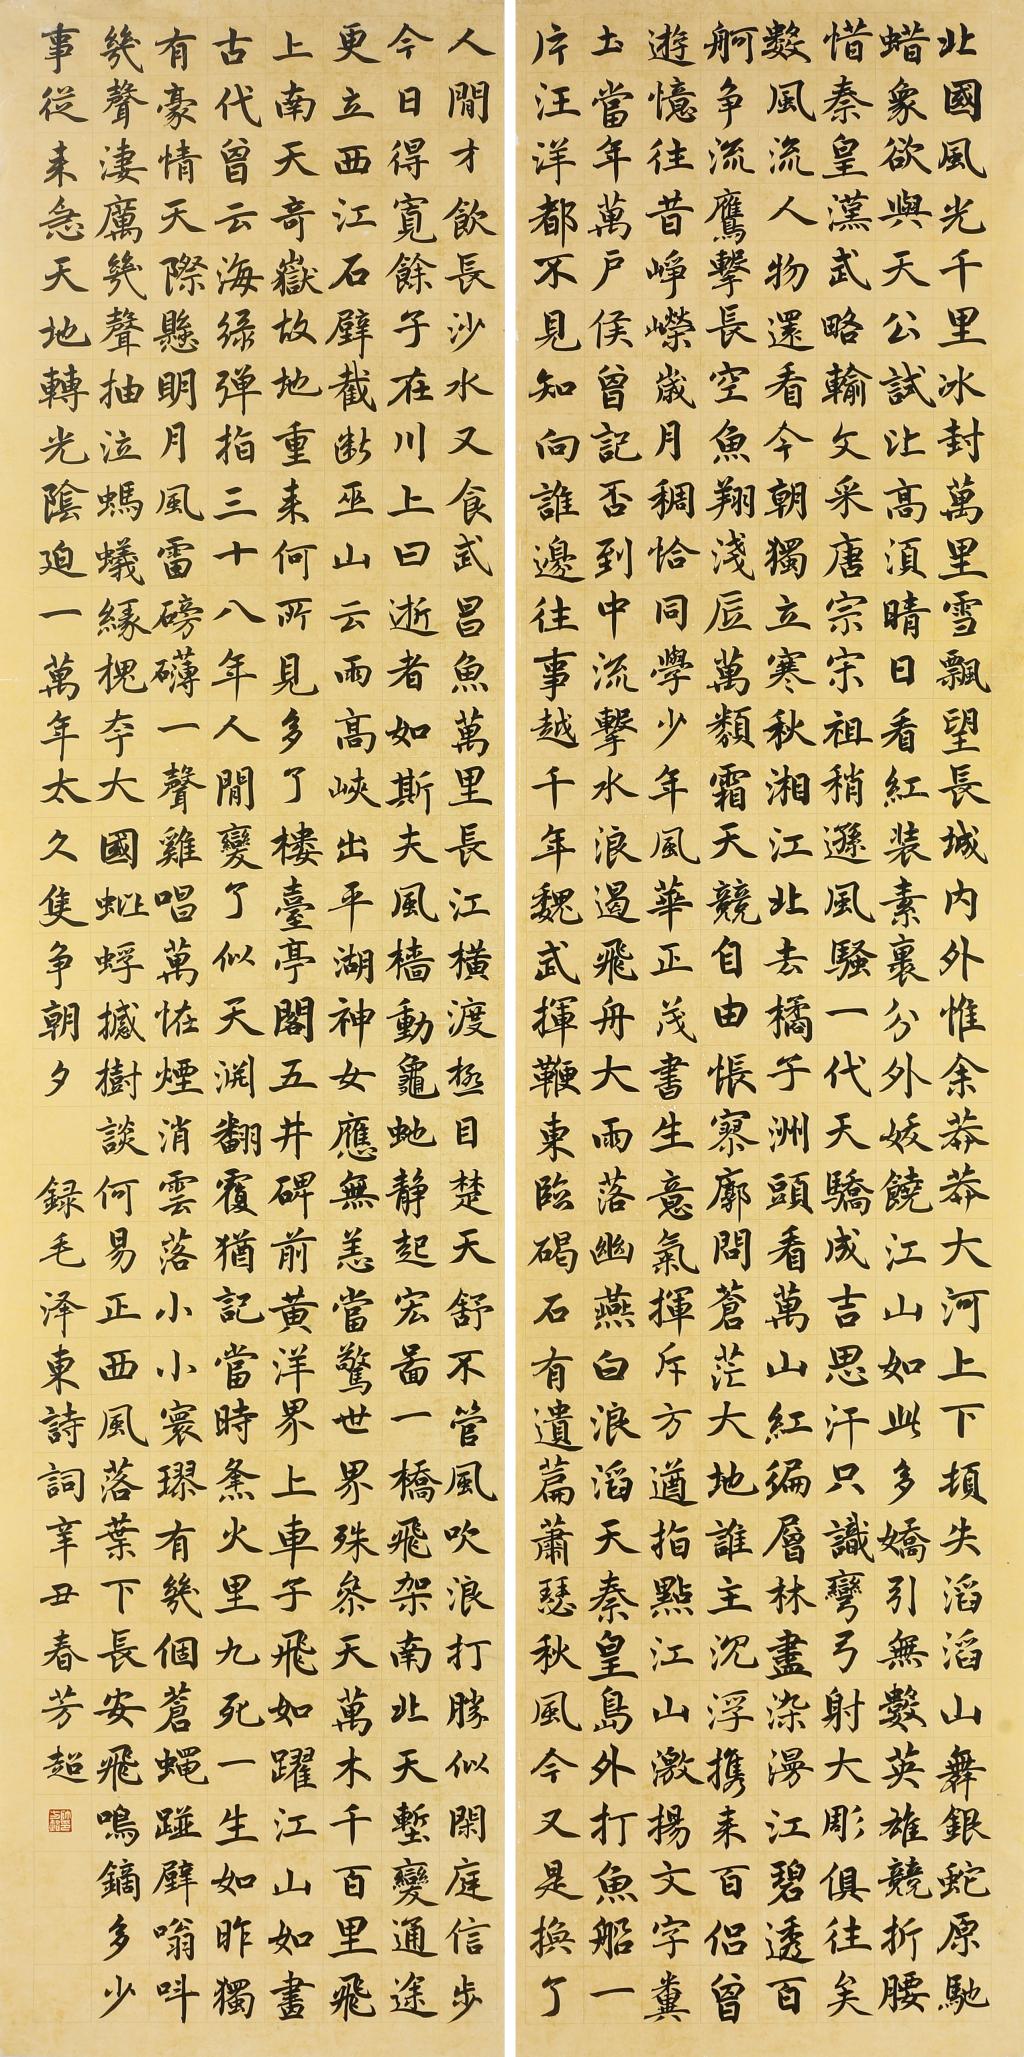 北國風光千里冰封萬里雪飄望長城内外惟余莽莽大河上下頓失滔滔山舞銀蛇原馳
蜡象欲與天公試比高須晴日看紅装素裹分外妖饒江山如此多嬌引無數英雄競折腰
惜秦皇漢武略輸文采唐宗宋祖稍遜風騷一代天驕成吉思汗只識彎弓射大彫俱往矣
數風流人物還看今朝獨立寒秋湘江北去橘子洲頭看萬山紅徧層林盡染漫江碧透百
舸争流鷹擊長空魚翔淺底萬類霜天競自由悵寥廓問蒼茫大地誰主沉浮携来百侣曾
遊憶往昔崢嶸歲月稠恰同學少年風華正茂書生意氣揮斥方遒指點江山激揚文字糞
土當年萬戶侯曾記否到中流擊水浪遏飛舟大雨落幽燕白浪滔天秦皇島外打魚船一
片汪洋都不見知向誰邊往事越千年魏武揮鞭東臨碣石有遺篇蕭瑟秋風今又是換了
人間才飲長沙水又食武昌魚萬里長江橫渡極目楚天舒不管風吹浪打勝似閑庭信步
今日得寬餘子在川上曰逝者如斯夫風檣動龜虵静起宏啚一橋飛架南北天塹變通途
更立西江石壁截斷巫山云雨高峽出平湖神女應無恙當驚世界殊叅天萬木千百里飛
上南天奇嶽故地重来何所見多了樓臺亭閣五井碑前黃洋界上車子飛如躍江山如畫
古代曾云海绿弹指三十八年人間變了似天渊翻覆猶記當時烽火里九死一生如昨獨
有豪情天際懸明月風雷磅礴一聲雞唱萬恠煙消雲落小小寰球有幾個蒼蝇碰壁嗡叫
幾聲淒厲幾聲抽泣螞蟻緣槐夸大國蚍蜉撼樹談何易正西風落葉下長安飛鳴鏑多少
事從来急天地轉光陰迫一萬年太久隻争朝夕 録毛泽東詩詞辛丑春芳超